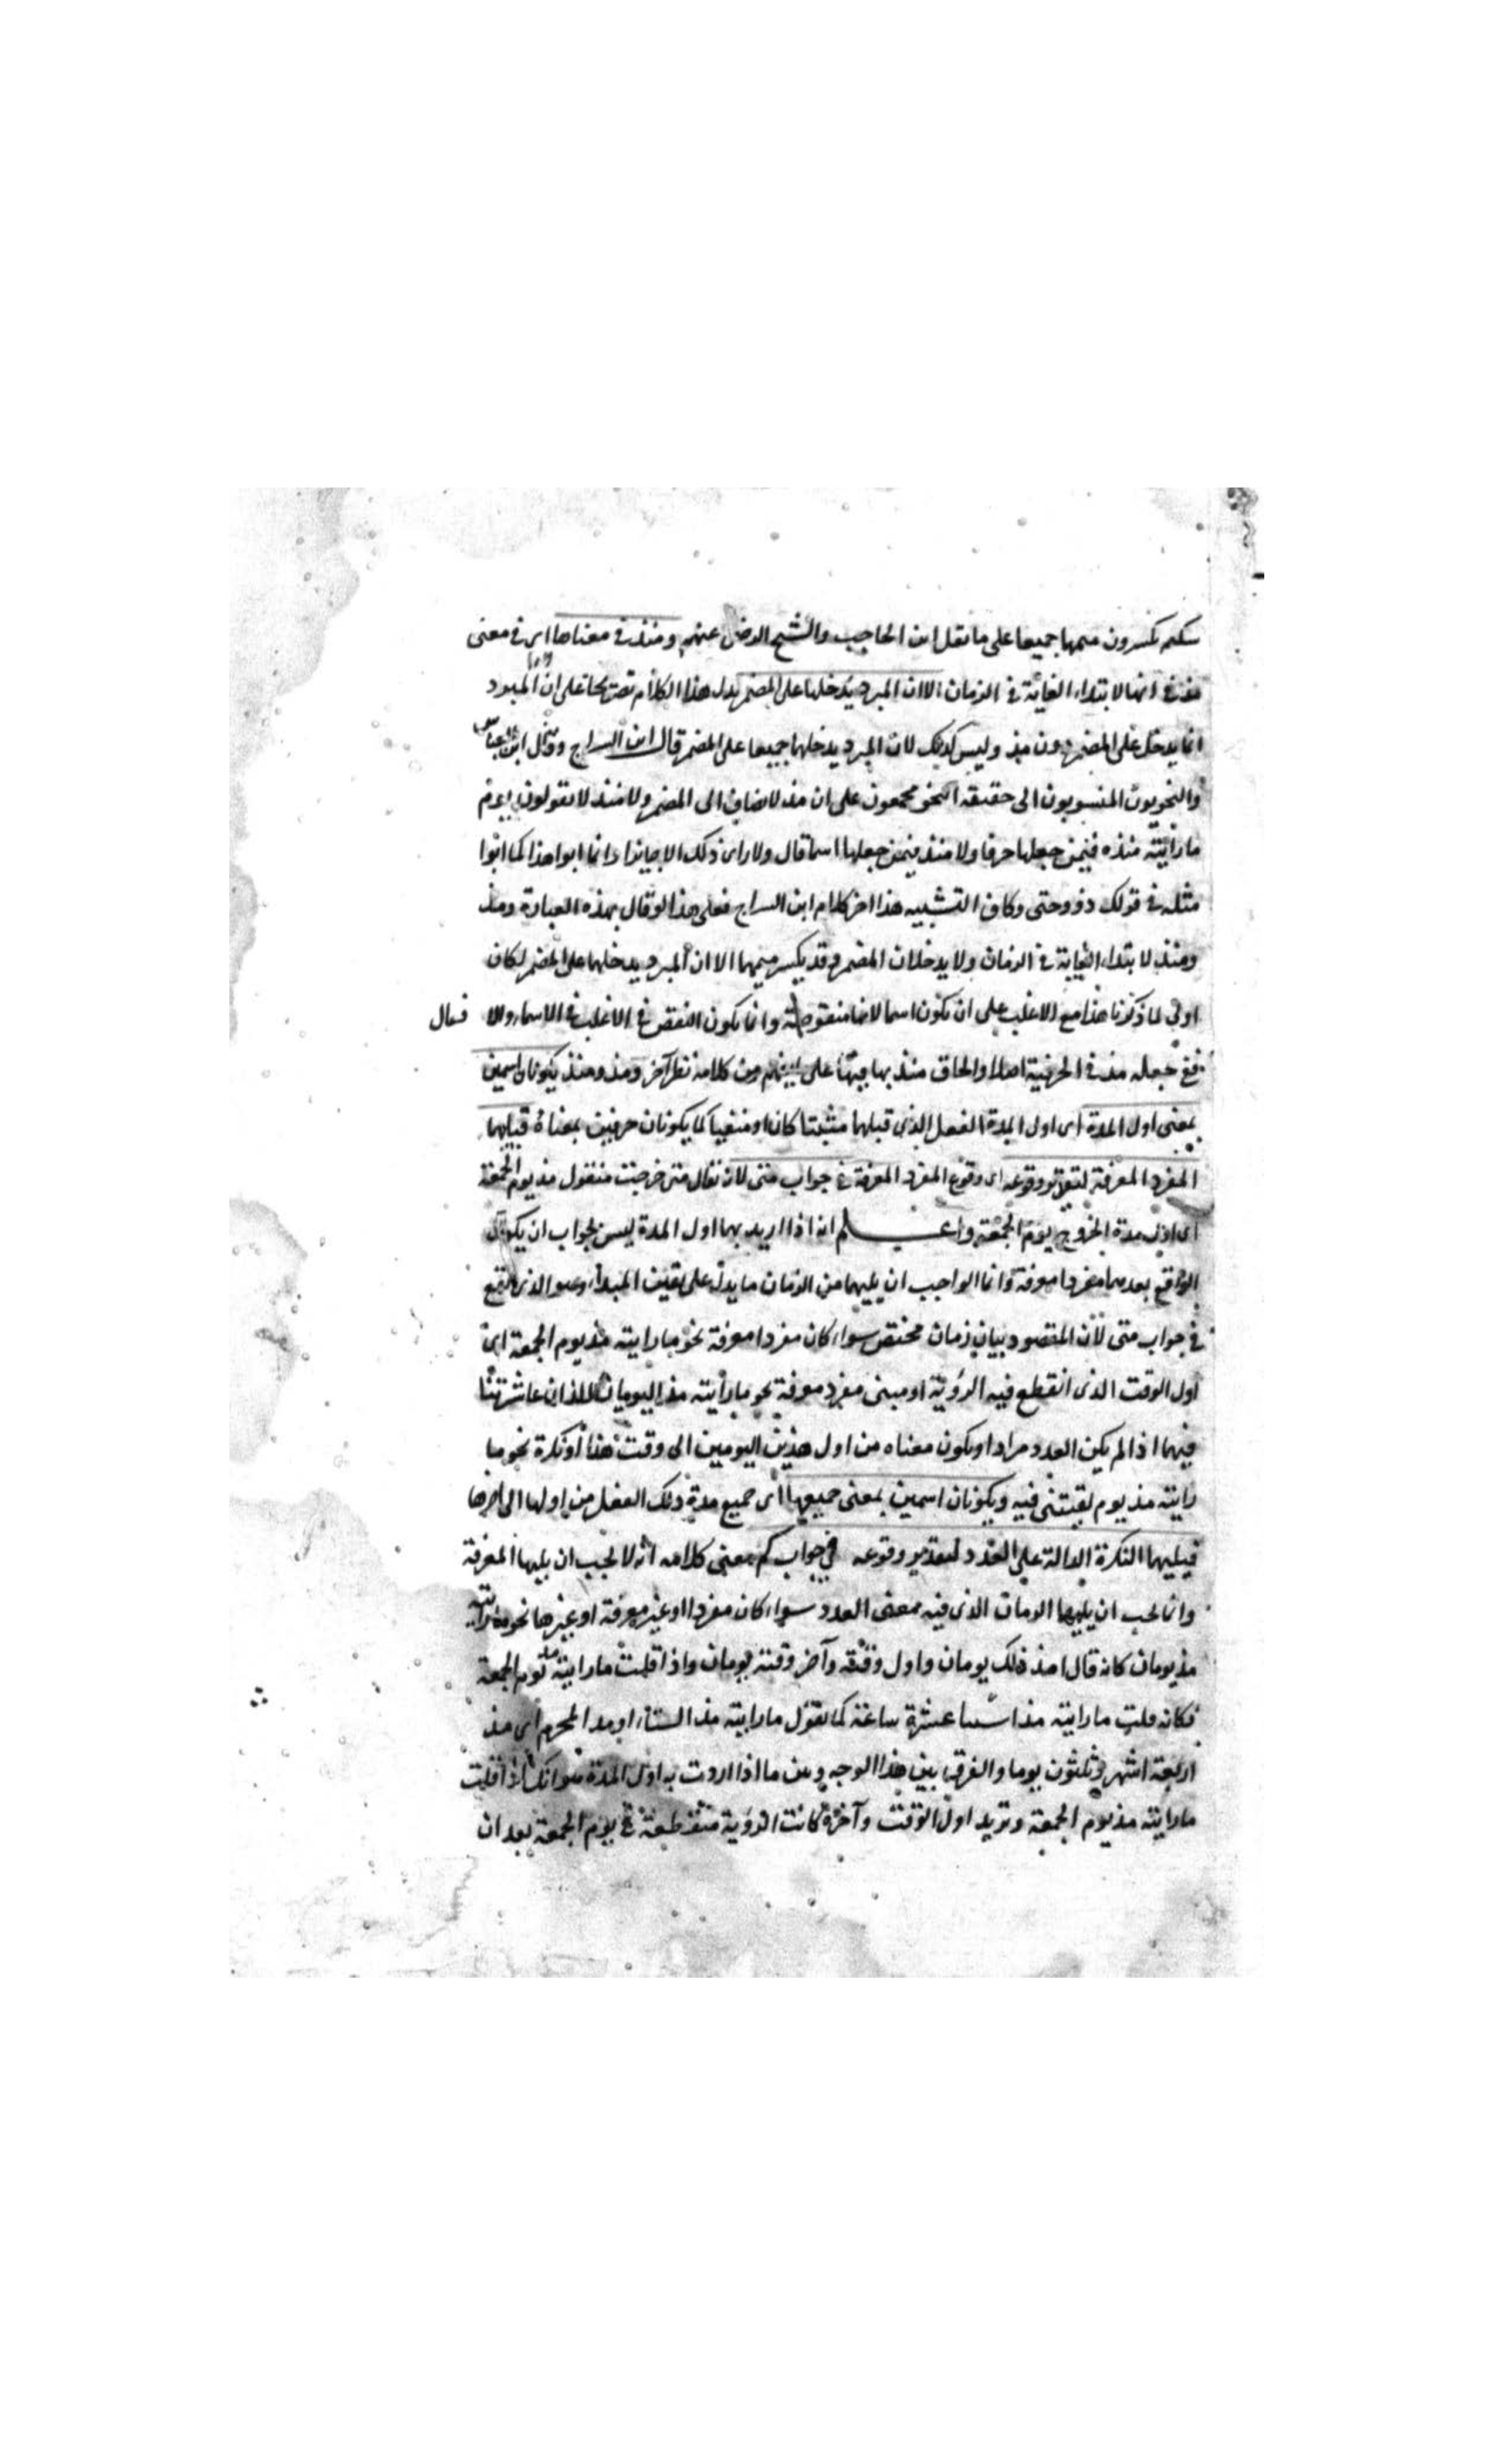 سليم يكسرون ميمهما جميعا على ما نقل ابن الحاجب والشيخ الرضى عنهم ومنذ فى معناها اى فى معنى
مذ فى انها لابتداء الغاية فى الزمان الا ان المبرد يدخلها على المضمر يدل هذا الكلام على ان المبرد
انما يدخل على المضمر دون مذ وليس كذلك لان المبرد يدخلهما جميعا على المضمر قال ابن السراج وقال
والنحويون المنسوبون الى حقيقة النحو مجمعون على ان مذ لا يضاف الى المضمر ولا منذ لا يقولون يوم
ما رأيته منذه فيمن جعلها حرفا ولا منذ فيمن جعلها اسما قال ولا ارى ذلك الا جايزا وانما ابوا هذا كما ابوا
مثله فى قولك ذو وحتى وكاف التشبيه هذا اخر كلام ابن السراج فعلى هذا لو قال بهذه العبارة ومذ
ومنذ لابتداء الغاية فى الزمان ولا يدخلان المضمر وقد يكسر ميمهما الا ان المبرد يدخلهما على المضمر لكان
اولى لما ذكرنا هذا مع الاغلب على ان تكون اسما لانها منقوصة وانما يكون النقص فى الاغلب فى الاسماء والافعال
ففى جعله مذ فى الحرفية اصلا والحاق منذ بها من كلامه نظر آخر ومذ ومنذ يكونان اسمين
بمعنى اول المدة اى اول المدة الفعل الذى قبلهما مثبتا كان او منفيا كما يكونان حرفين بمعناه فيليهما
المفرد المعرفة لتقدير وقوعه اى وقوع المفرد المعرفة فى جواب متى لان تقال متى خرجت فتقول مذ يوم الجمعة
اى اول مدة الخروج يوم الجمعة واعلم انه اذا اريد بهما اول المدة ليس بجواب ان يكون
الواقع بعدهما مفردا معرفة وانما الواجب ان يليهما من الزمان ما يدل على تعيين المبداء وهو الذى يقع
فى جواب متى لان المقصود بيان زمان مختص سواء كان مفردا معرفة نحو ما رايته مذ يوم الجمعة اى
اول الوقت الذى انقطع فيه الرؤية او مبنى مفرد معرفة نحو ما رأيته مذ اليومان اللذان عاشرتنا
فيهما اذا لم يكن العدد مرادا ويكون معناه من اول هذين اليومين الى وقت هذا او نكرة نحو ما
رايته مذ يوم لقيتنى فيه ويكونان اسمين بمعنى جميعها اى جميع مدة ذلك الفعل من اولها الى اخرها
فيليهما النكرة الدالة على العدد لتقدير وقوعه فى جواب كم معنى كلامه انه لا يجب ان يليها المعرفة
وانما يجب ان يليهما الزمان الذى فيه معنى العدد سواء كان مفردا او غير معرفة او غيرها نحو ما رايته
مذ يومان كانه قال امد ذلك يومان واول وقته وآخر وقته يومان واذا قلت ما رايته مذ يوم الجمعة
فكانه قلت ما رايته مذ اثنتا عشرة ساعة كما تقول ما رايته مذ الستاء او مذ المحرم اى مذ
اربعة اشهر وثلثون يوما والفرق بين هذا الوجه وبين ما اذا اردت به اول المدة هو انك اذا قلت
ما رايته مذ يوم الجمعة وتريد اول الوقت وآخره كانت الرؤية منقطعة فى يوم الجمعة بعد ان